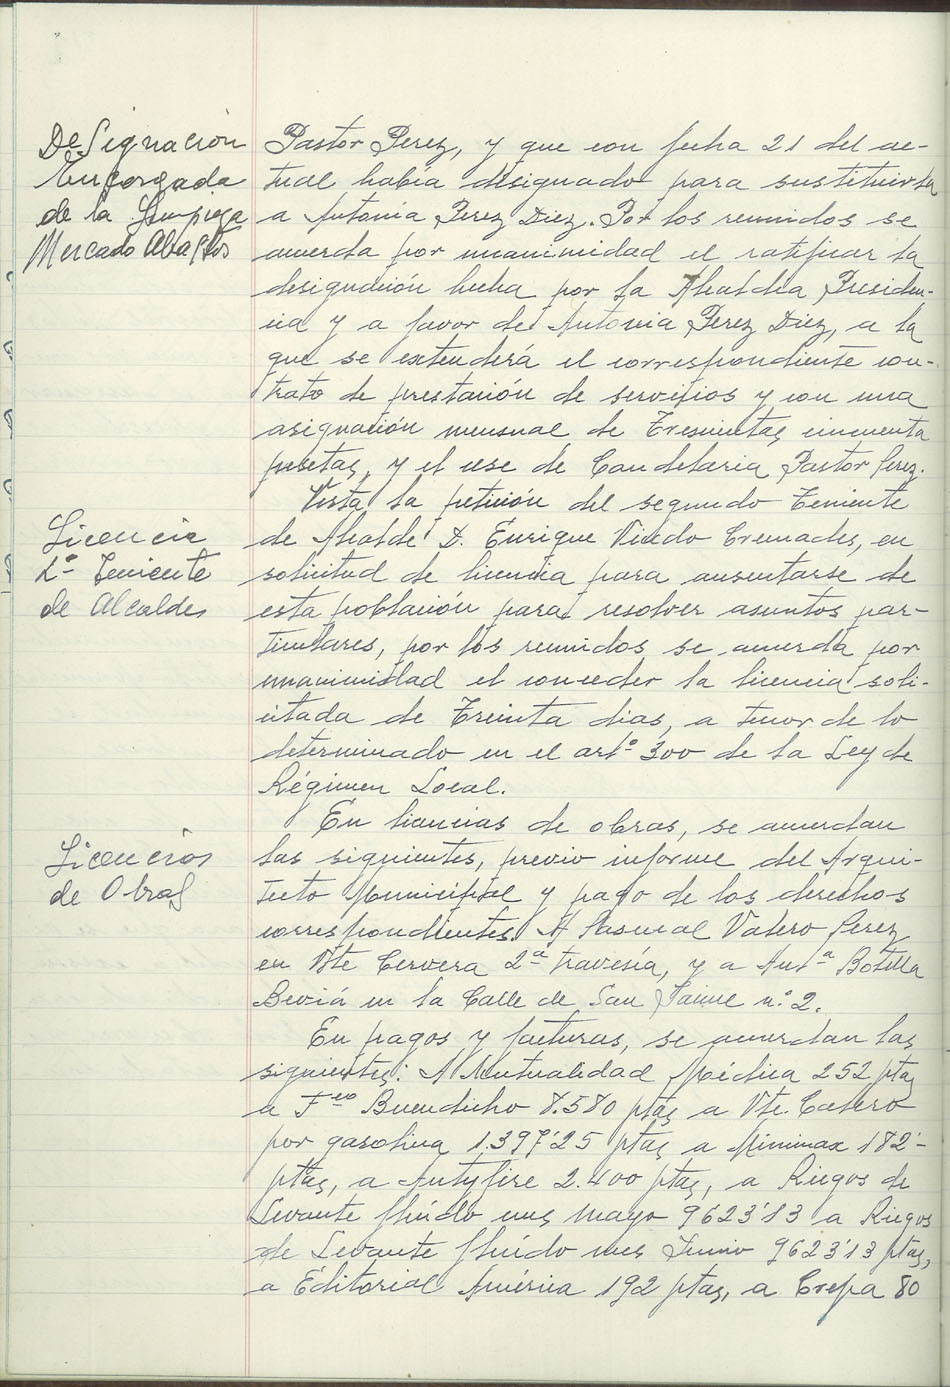 Designación
Encargada
de la Limpieza
Mercado Abastos
Pastor Perez, y que con fecha 21 del ac-
tual habia designado para sustituirla
a Antonia Perez Diez. Por los reunidos se
acuerda por unanimidad el ratificar la
designación hecha por la Alcaldia Presiden-
cia y a favor de Antonia Perez Diez, a la
que se extenderá el correspondiente con-
trato de prestación de servicios y con una
asignación mensual de Trescientas cincuenta
pesetas, y el cese de Candelaria Pastor Perez.
Licencia
2º Teniente
de Alcalde
Vista la petición del segundo Teniente
de Alcalde D. Enrique Viudo Cremades, en
solicitud de licencia para ausentarse de
esta población para resolver asuntos par-
ticulares, por los reunidos se acuerda por
unanimidad el conceder la licencia soli-
citada de Treinta dias, a tenor de lo
determinado en el artº 300 de la Ley de
Régimen Local.
Licencias
de Obras
En licencias de obras, se acuerdan
las siguientes, previo informe del Arqui-
tecto Municipal y pago de los derechos
correspondientes. A Pascual Valero Perez
en Vte Cervera 2ª travesía, y a Antª Botella
Beviá en la Calle de San Jaime n.º 2.
En pagos y facturas, se acuerdan las
siguientes: A Mutualidad Médica 252 ptas
a Fco Buendicho 8.580 ptas a Vte. Catero
por gasolina 1.397'25 ptas a Minimax 182'-
ptas, a Antyfire 2.400 ptas, a Riegos de
Levante fluído mes Mayo 9623'83 a Riegos
de Levante fluído mes Junio 9623'13 ptas,
a Editorial América 192 ptas, a Crepa 80